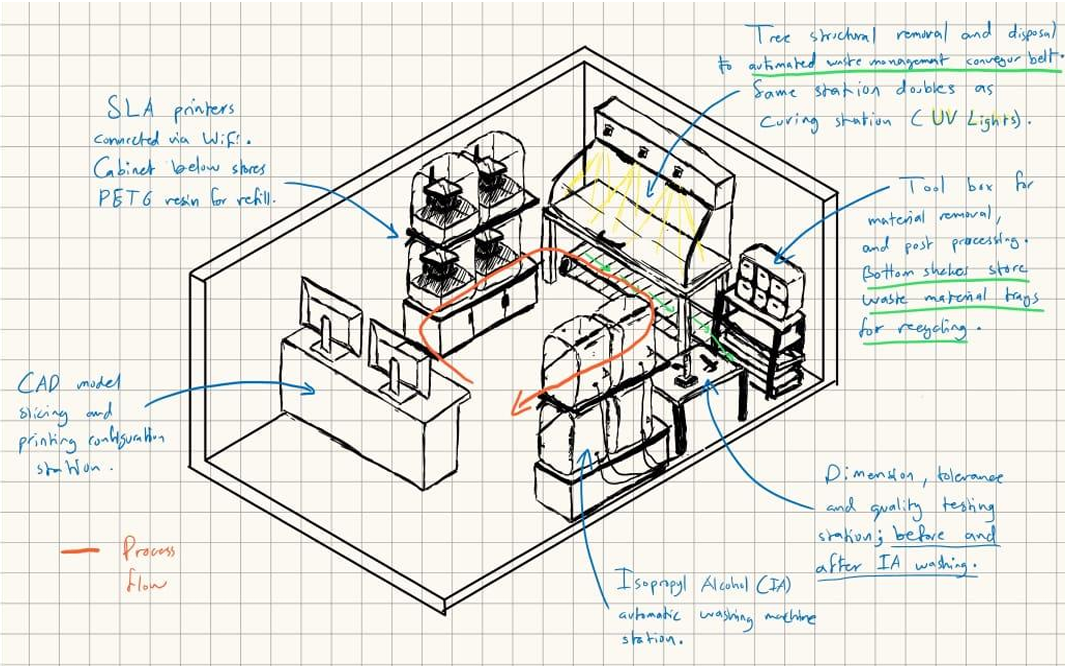 Tree structural removal and disposal
to automated waste management conveyor belt.
Same station doubles as
curing station (UV Lights).
SLA printers
connected via WiFi.
Cabinet below stores
PETG resin for refill.
Tool box for
material removal,
and post processing.
Bottom shelves store
waste material trays
for recycling.
CAD model
slicing and
printing configuration
station.
Dimension, tolerance
and quality testing
station; before and
after IA washing.
Process
flow
Isopropyl Alcohol (IA)
automatic washing machine
station.